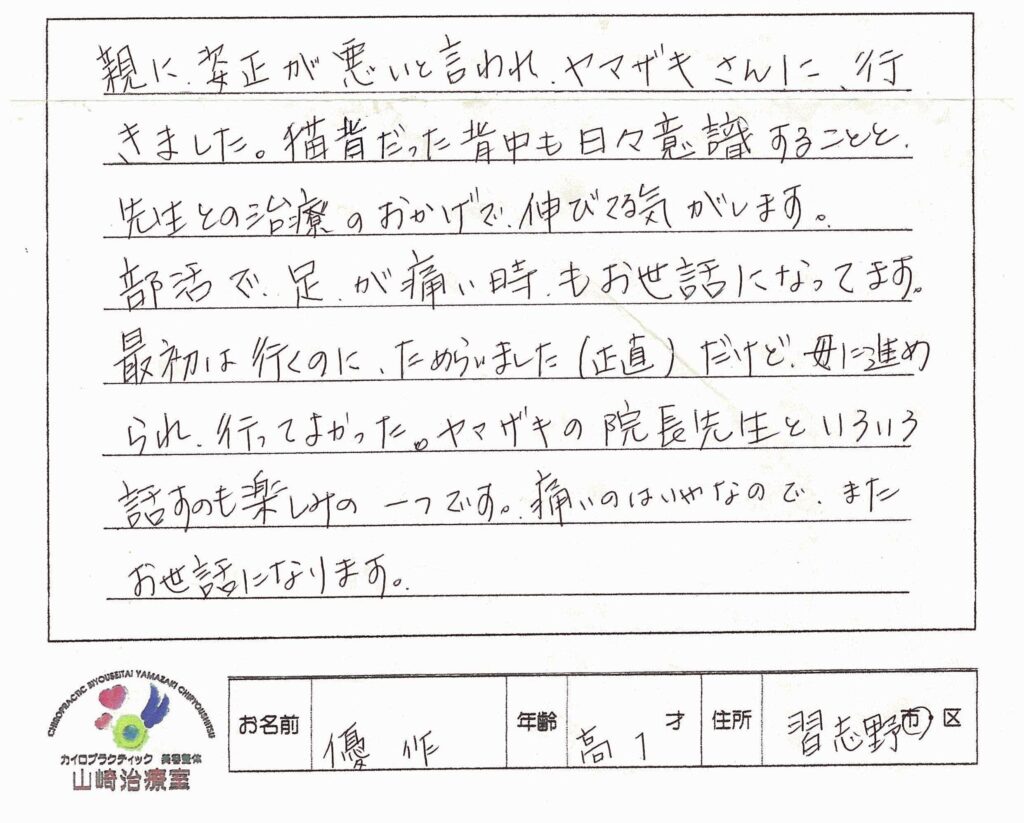 親に、姿正が悪いと言われ、ヤマザキさんに、行
きました。猫背だった背中も日々意識することと、
先生との治療のおかげで、伸びてる気がします。
部活で、足が痛い時、もお世話になってます。
最初は行くのに、ためらいました(正直)だけど、母に進め
られ、行ってよかった。ヤマザキの院長先生といろいろ
話すのも楽しみの一つです。痛いのはいやなので、また
お世話になります。
CHIROPRACTIC BIYOUSEITAI YAMAZAKI CHIRYOUSHITSU
カイロプラクティック 美容整体
山崎治療室
お名前 優作 年齢 高1 才 住所 習志野市・区